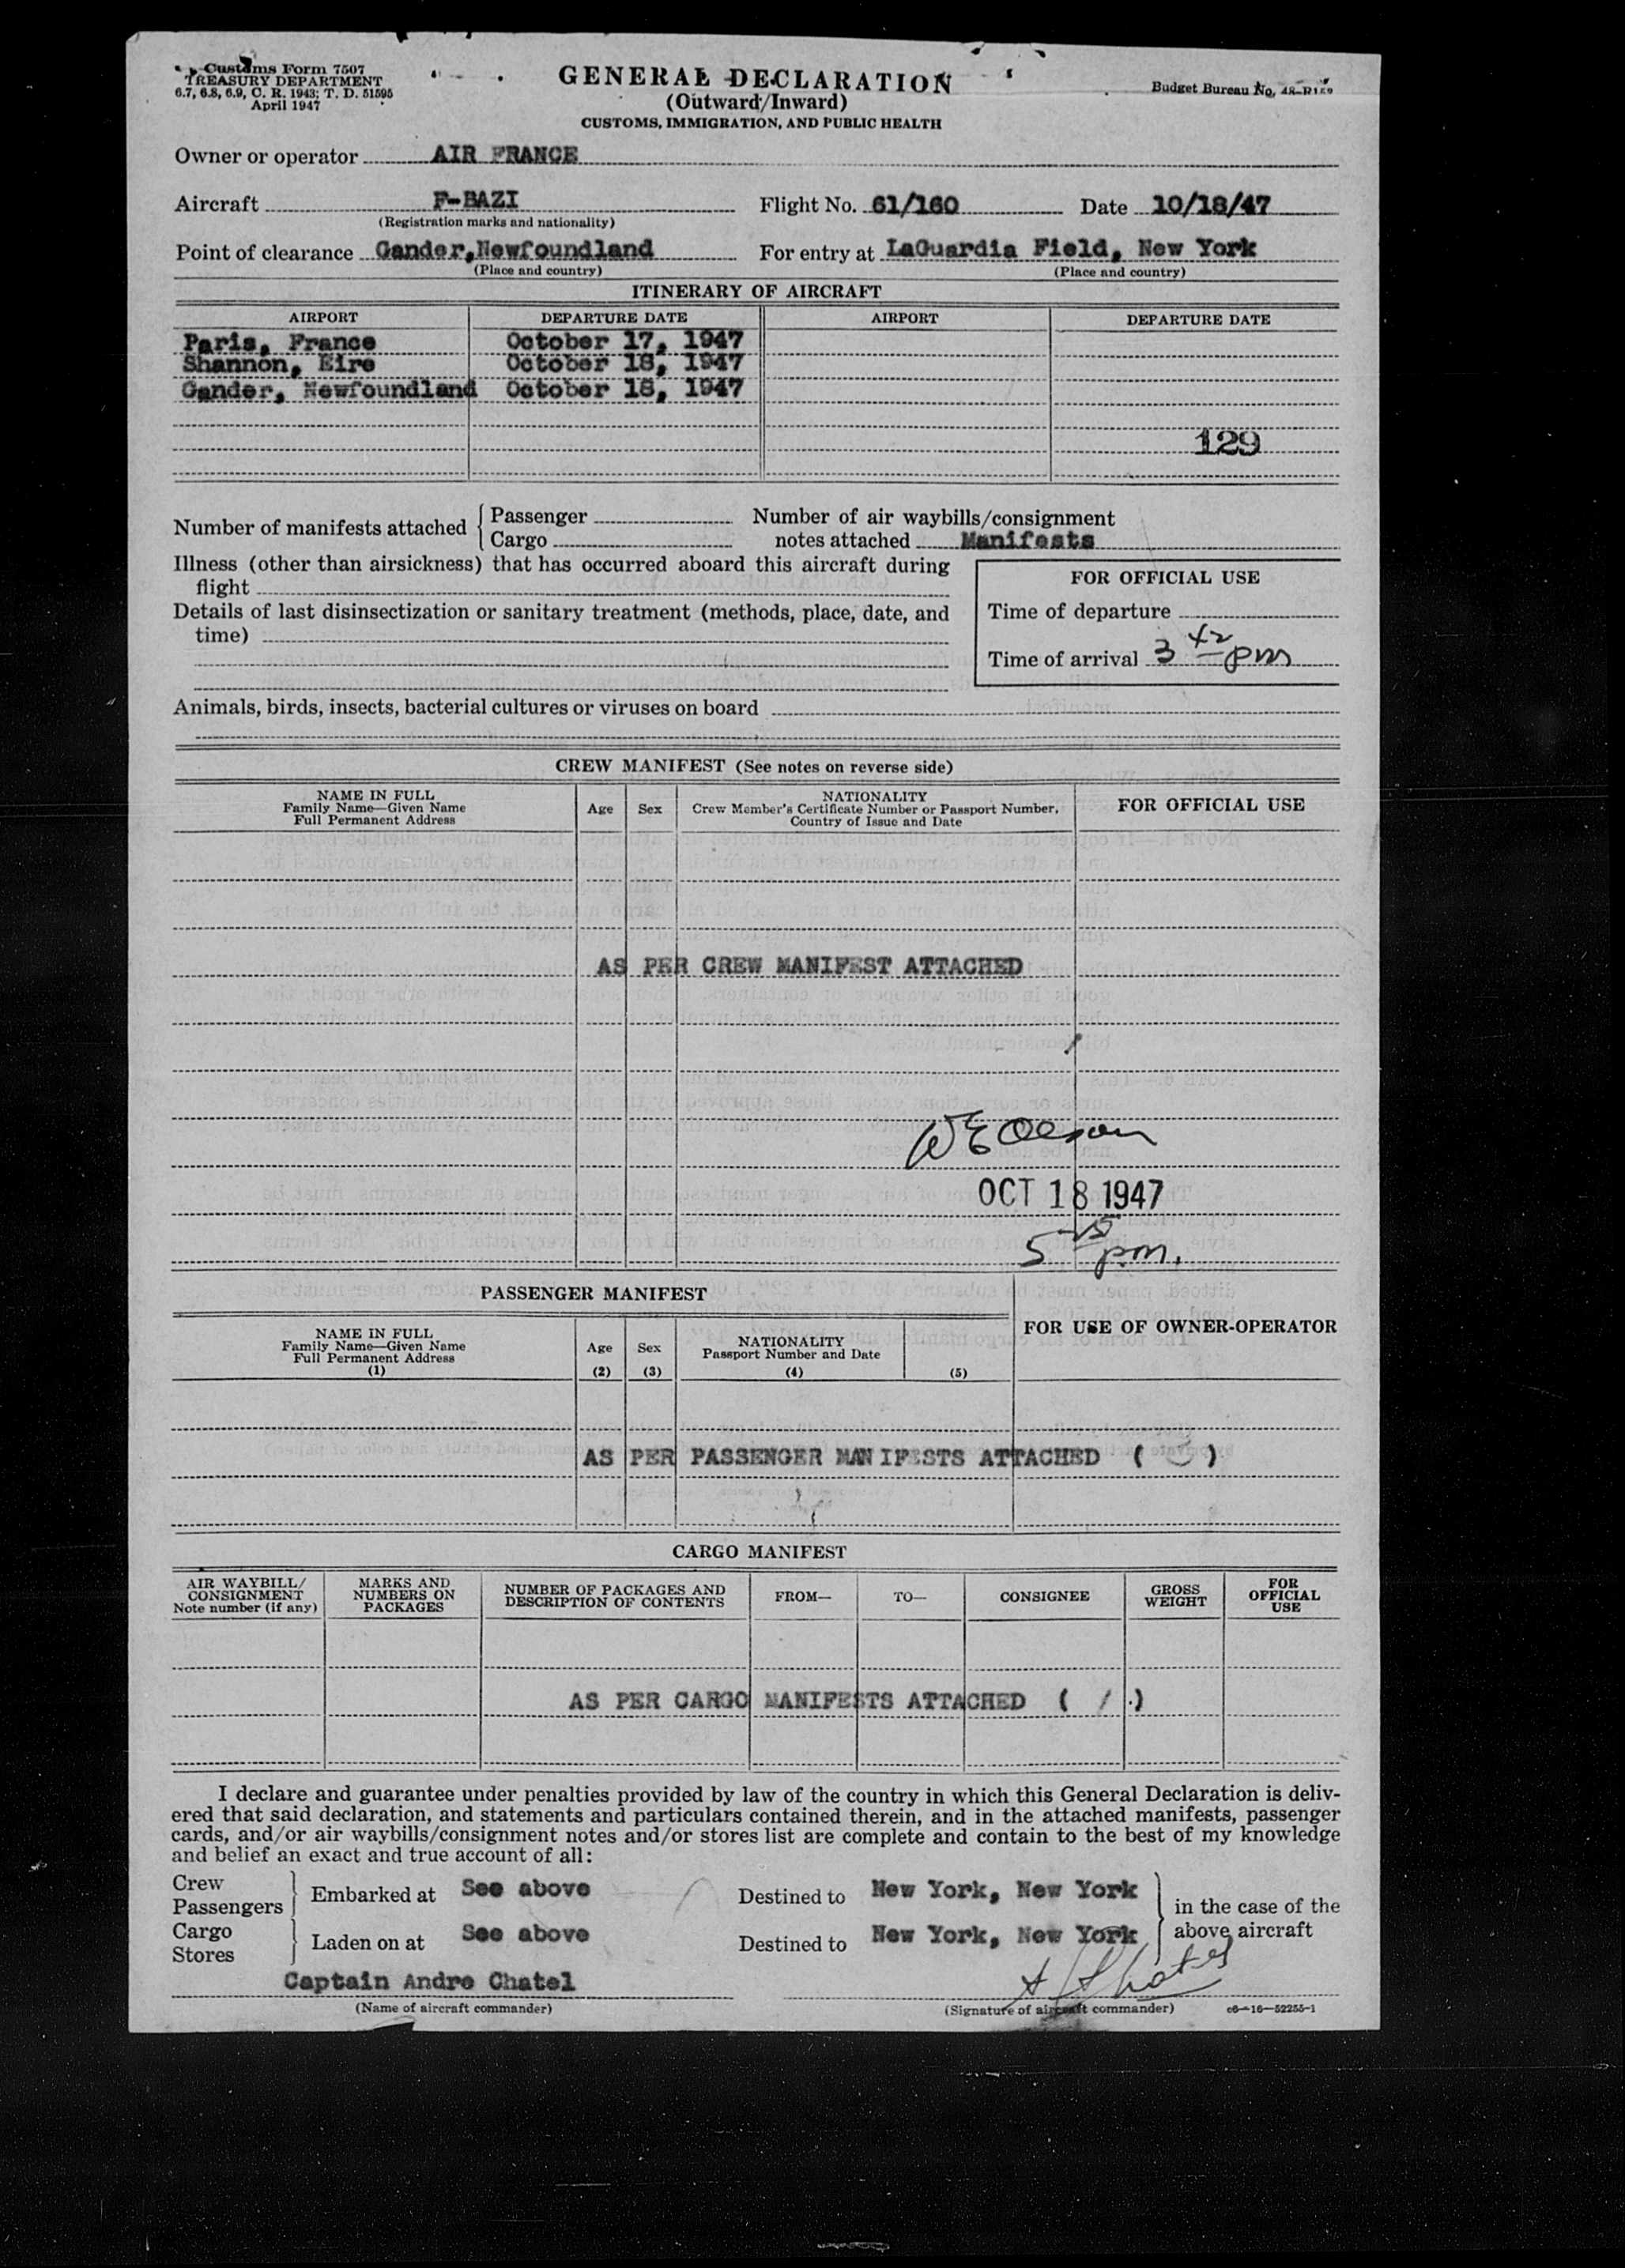 Customs Form 7507
TREASURY DEPARTMENT
6.7, 6.8, 6.9, C. R. 1943; T. D. 51595
April 1947
GENERAL DECLARATION
(Outward/Inward)
CUSTOMS, IMMIGRATION, AND PUBLIC HEALTH
Budget Bureau No.
Owner or operator AIR FRANCE
Aircraft F-BAZI Flight No. 61/160 Date 10/18/47
(Registration marks and nationality)
Point of clearance Gander, Newfoundland For entry at LaGuardia Field, New York
(Place and country) (Place and country)
ITINERARY OF AIRCRAFT
AIRPORT DEPARTURE DATE AIRPORT DEPARTURE DATE
Paris, France October 17, 1947
Shannon, Eire October 18, 1947
Gander, Newfoundland October 18, 1947
129
Number of manifests attached { Passenger
Cargo
Number of air waybills/consignment
notes attached Manifests
Illness (other than airsickness) that has occurred aboard this aircraft during
flight
Details of last disinsectization or sanitary treatment (methods, place, date, and
time)
FOR OFFICIAL USE
Time of departure
Time of arrival 3 42 pm
Animals, birds, insects, bacterial cultures or viruses on board
CREW MANIFEST (See notes on reverse side)
NAME IN FULL
Family Name—Given Name
Full Permanent Address
Age
Sex
NATIONALITY
Crew Member's Certificate Number or Passport Number,
Country of Issue and Date
FOR OFFICIAL USE
AS PER CREW MANIFEST ATTACHED
W E Olson
OCT 18 1947
5 15 pm.
PASSENGER MANIFEST
NAME IN FULL
Family Name—Given Name
Full Permanent Address
(1)
Age
(2)
Sex
(3)
NATIONALITY
Passport Number and Date
(4)
(5)
FOR USE OF OWNER-OPERATOR
AS PER PASSENGER MANIFESTS ATTACHED ( )
CARGO MANIFEST
AIR WAYBILL/
CONSIGNMENT
Note number (if any)
MARKS AND
NUMBERS ON
PACKAGES
NUMBER OF PACKAGES AND
DESCRIPTION OF CONTENTS
FROM—
TO—
CONSIGNEE
GROSS
WEIGHT
FOR
OFFICIAL
USE
AS PER CARGO MANIFESTS ATTACHED ( / )
I declare and guarantee under penalties provided by law of the country in which this General Declaration is deliv-
ered that said declaration, and statements and particulars contained therein, and in the attached manifests, passenger
cards, and/or air waybills/consignment notes and/or stores list are complete and contain to the best of my knowledge
and belief an exact and true account of all:
Crew
Passengers } Embarked at See above Destined to New York, New York
Cargo
Stores } Laden on at See above Destined to New York, New York
in the case of the
above aircraft
Captain Andre Chatel
A Chatel
(Name of aircraft commander) (Signature of aircraft commander) c6—16—52255-1